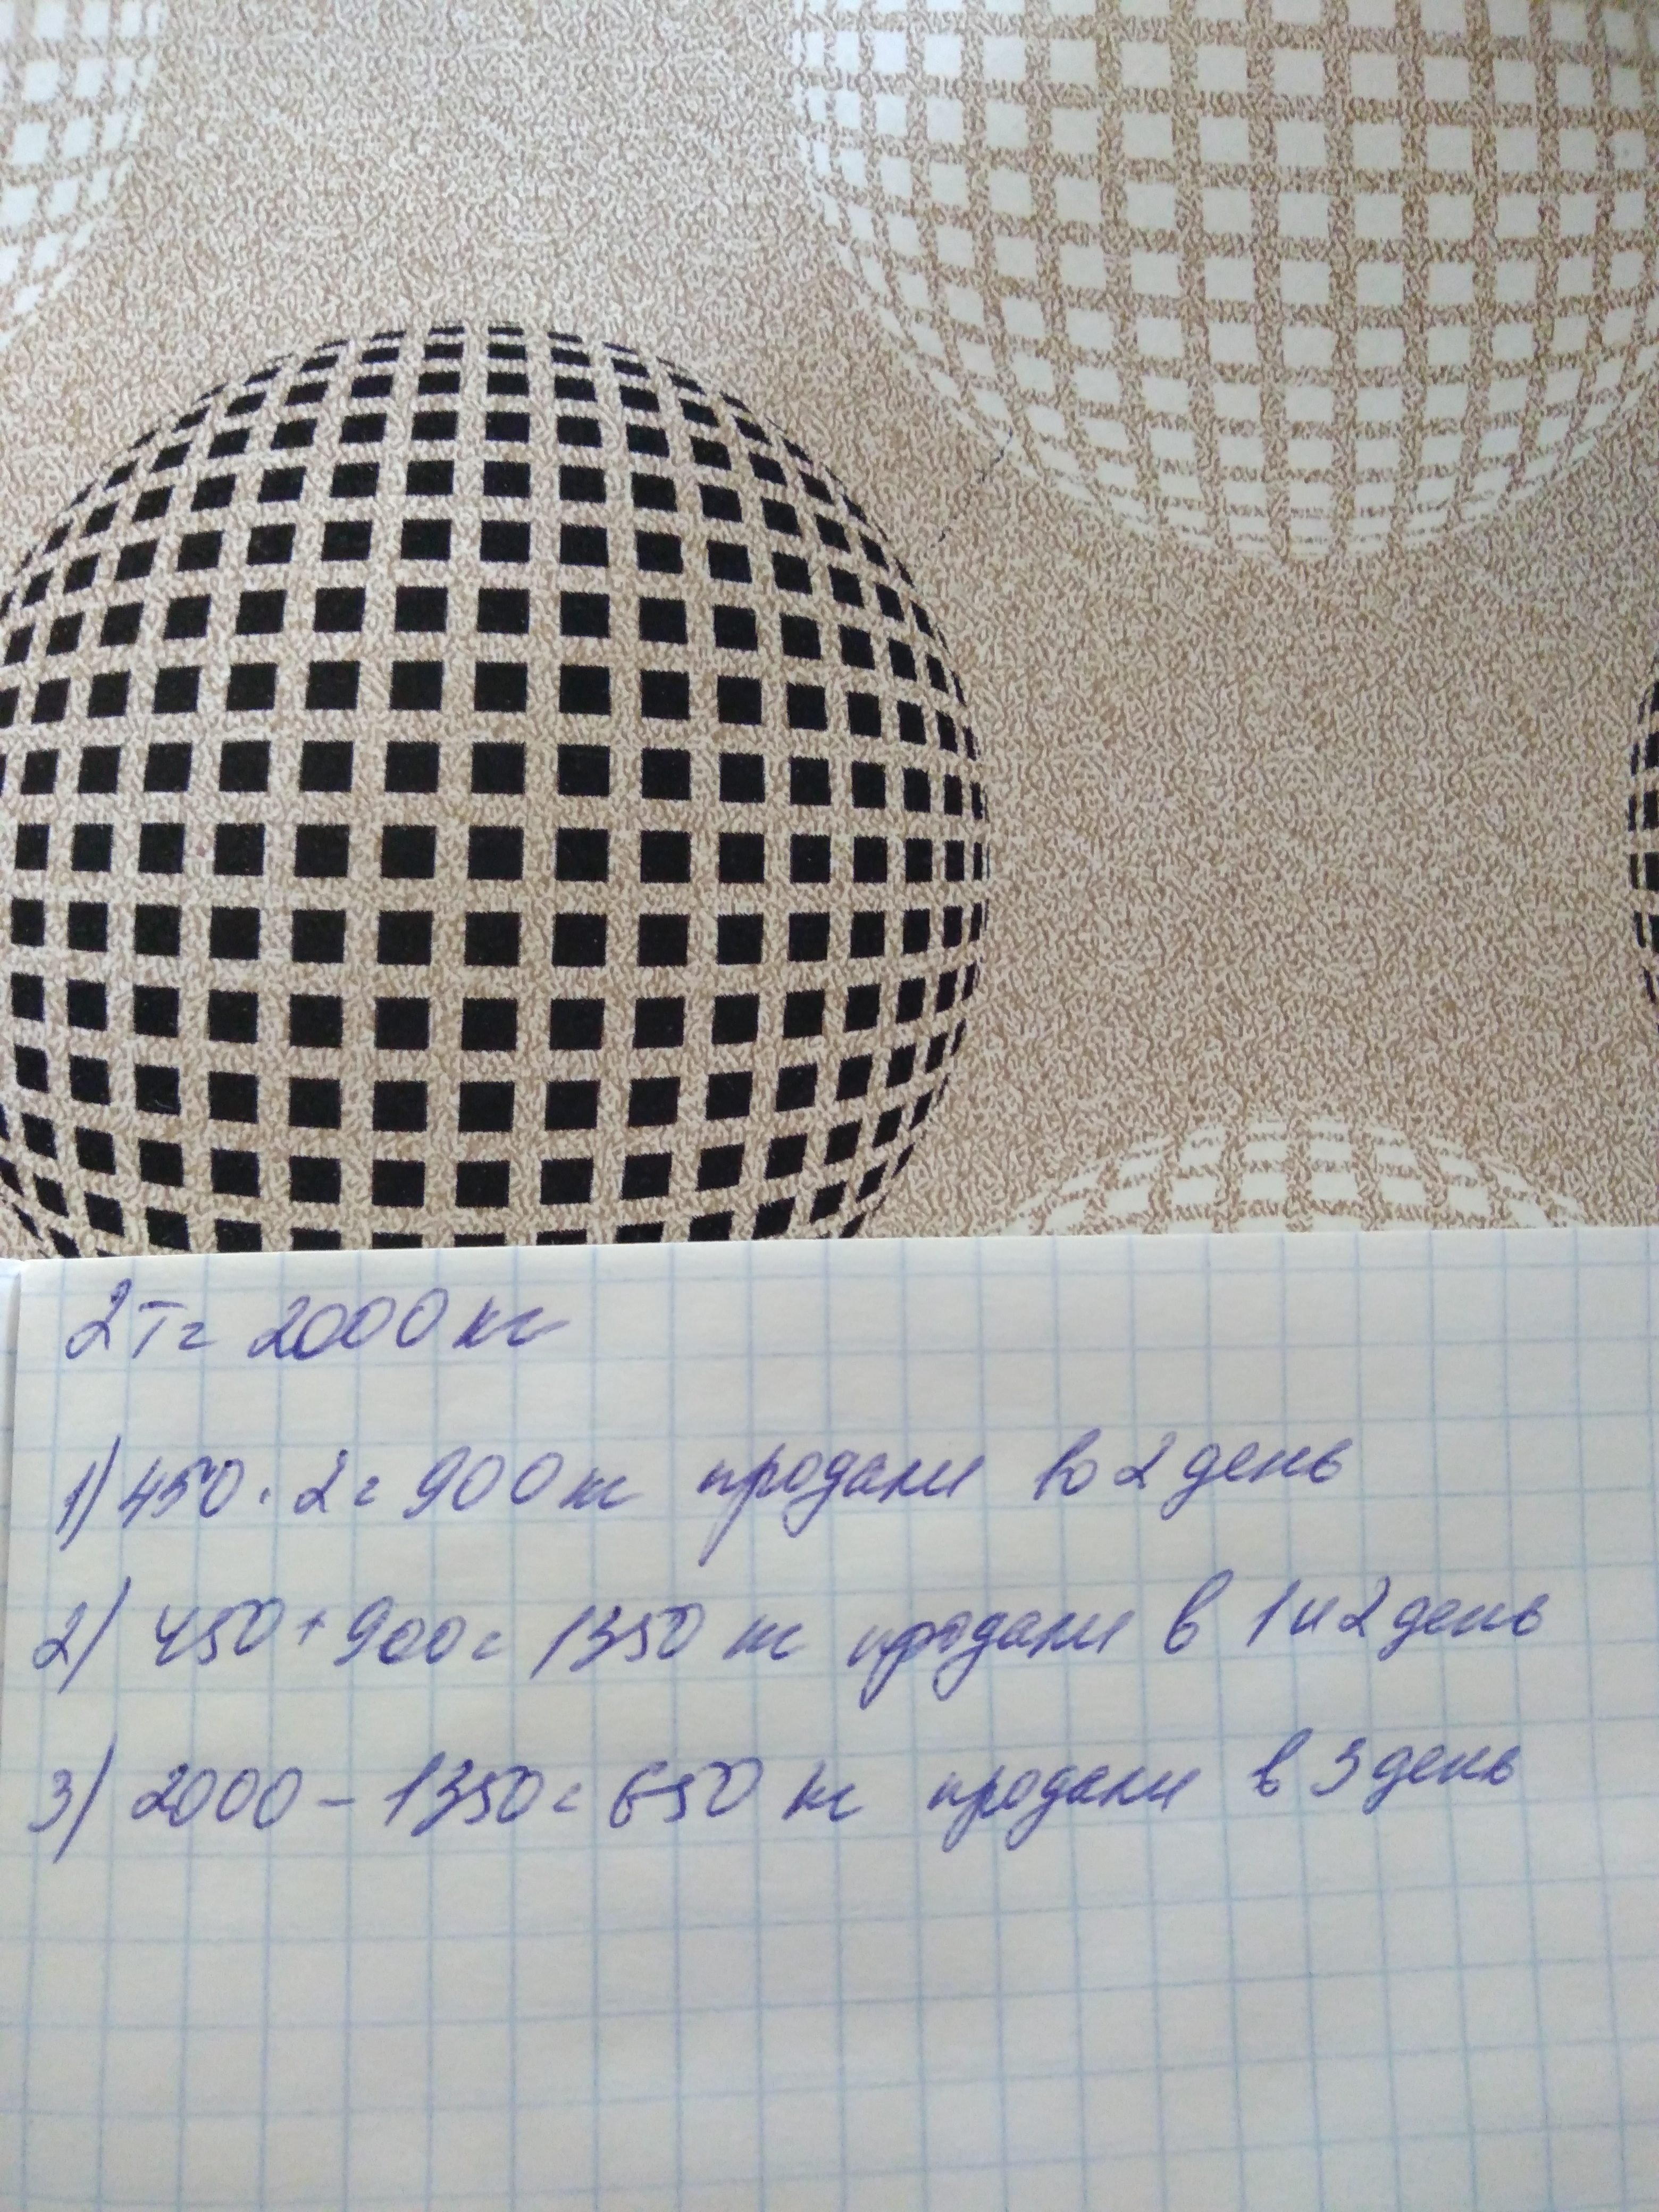 2т = 2000 кг
1) 450 · 2 = 900 кг продали во 2 день
2) 450 + 900 = 1350 кг продали в 1 и 2 день
3) 2000 - 1350 = 650 кг продали в 3 день